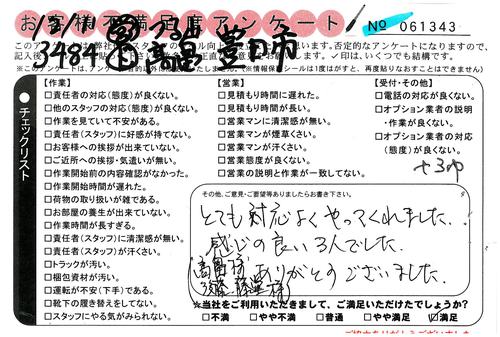 お客様不満足度アンケート
No 061343
3484
豊田市
【作業】
□責任者の対応(態度)が良くない。
□他のスタッフの対応(態度)が良くない。
□作業を見ていて不安がある。
□責任者(スタッフ)に好感が持てない。
□お客様への挨拶が出来ていない。
□ご近所への挨拶・気遣いが無い。
□作業開始前の内容確認がなかった。
□作業開始時間が遅れた。
□荷物の取り扱いが雑である。
□お部屋の養生が出来ていない。
□作業時間が長すぎる。
□責任者(スタッフ)に清潔感が無い。
□責任者(スタッフ)が汗くさい。
□トラックが汚い。
□梱包資材が汚い。
□運転が不安(下手)である。
□靴下の履き替えをしてない。
□スタッフにやる気がみられない。
【営業】
□見積もり時間に遅れた。
□見積もり時間が長い。
□営業マンに清潔感が無い。
□営業マンが煙草くさい。
□営業マンが汗くさい。
□営業態度が良くない。
□営業の説明と作業が一致してない。
【受付・その他】
□電話の対応が良くない。
□オプション業者の説明
・作業が良くない。
□オプション業者の対応
(態度)が良くない。
● チェックリスト
その他、ご意見・ご要望等ありましたらお書き下さい。
とても対応よくやってくれました。
感じの良い3人でした。
ありがとうございました。
※当社をご利用いただきまして、ご満足いただけたでしょうか?
□不満 □やや不満 □普通 □やや満足 ☑満足